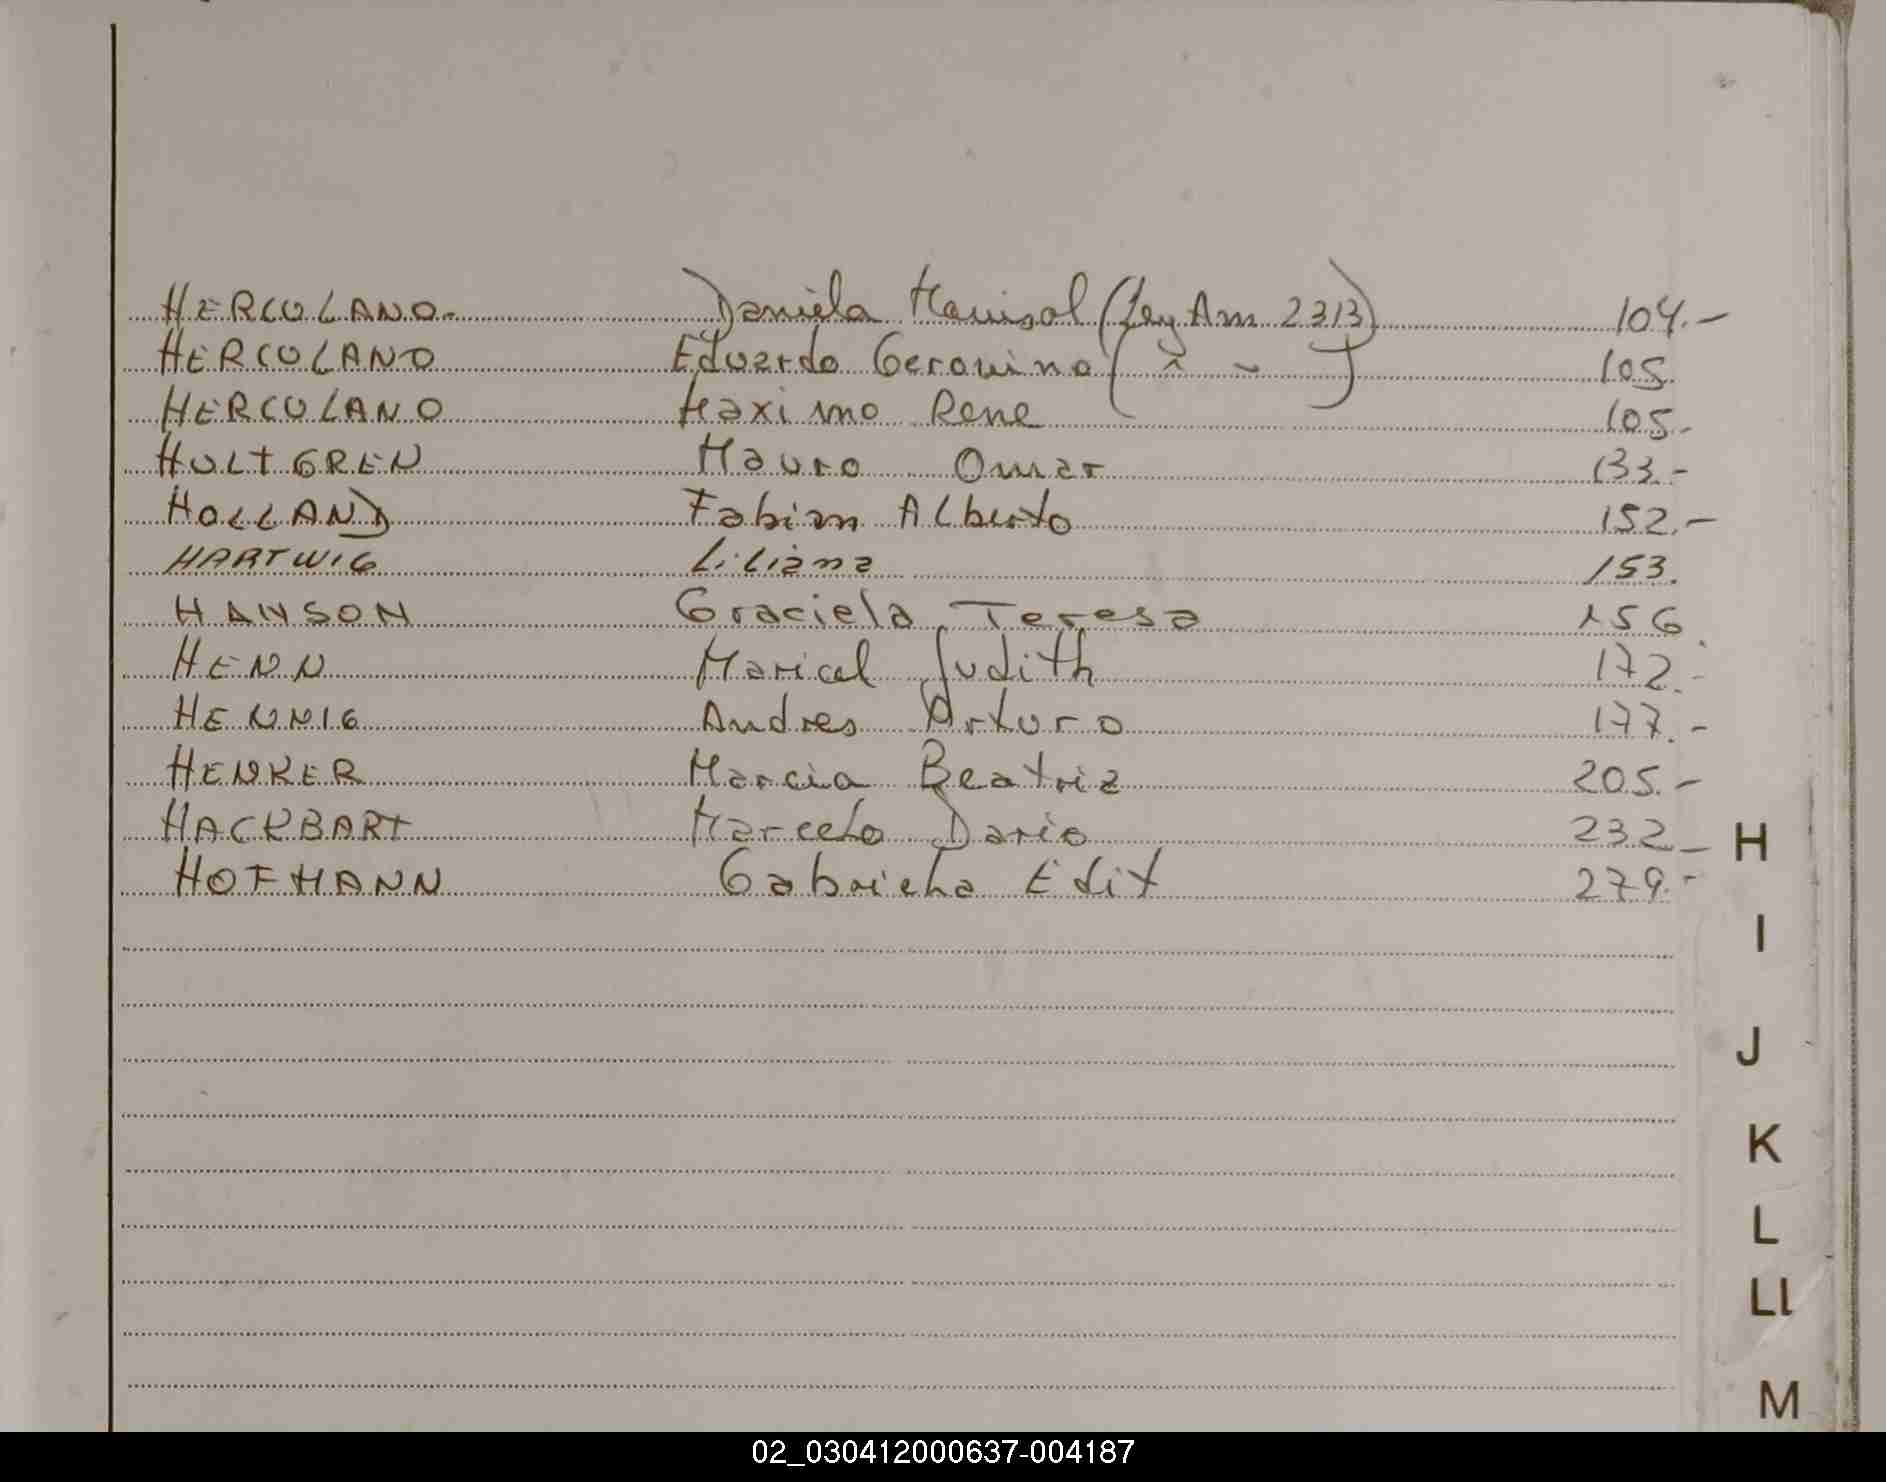 HERCOLANO- Daniela Marisol (Ley Am 2313) 104.-
HERCOLANO Eduardo Geronimo ( " - ) 105
HERCOLANO Maximo Rene 105.-
HULTGREN Mauro Omar 133.-
HOLLAND Fabian Alberto 152.-
HARTWIG Liliana 153.
HANSON Graciela Teresa 156.
HENN Maricel Judith 172.-
HENNIG Andres Arturo 177.-
HENKER Marcia Beatriz 205.-
HACKBART Marcelo Dario 232-
HOFMANN Gabriela Edit 279.-
H
I
J
K
L
Ll
M
02_030412000637-004187